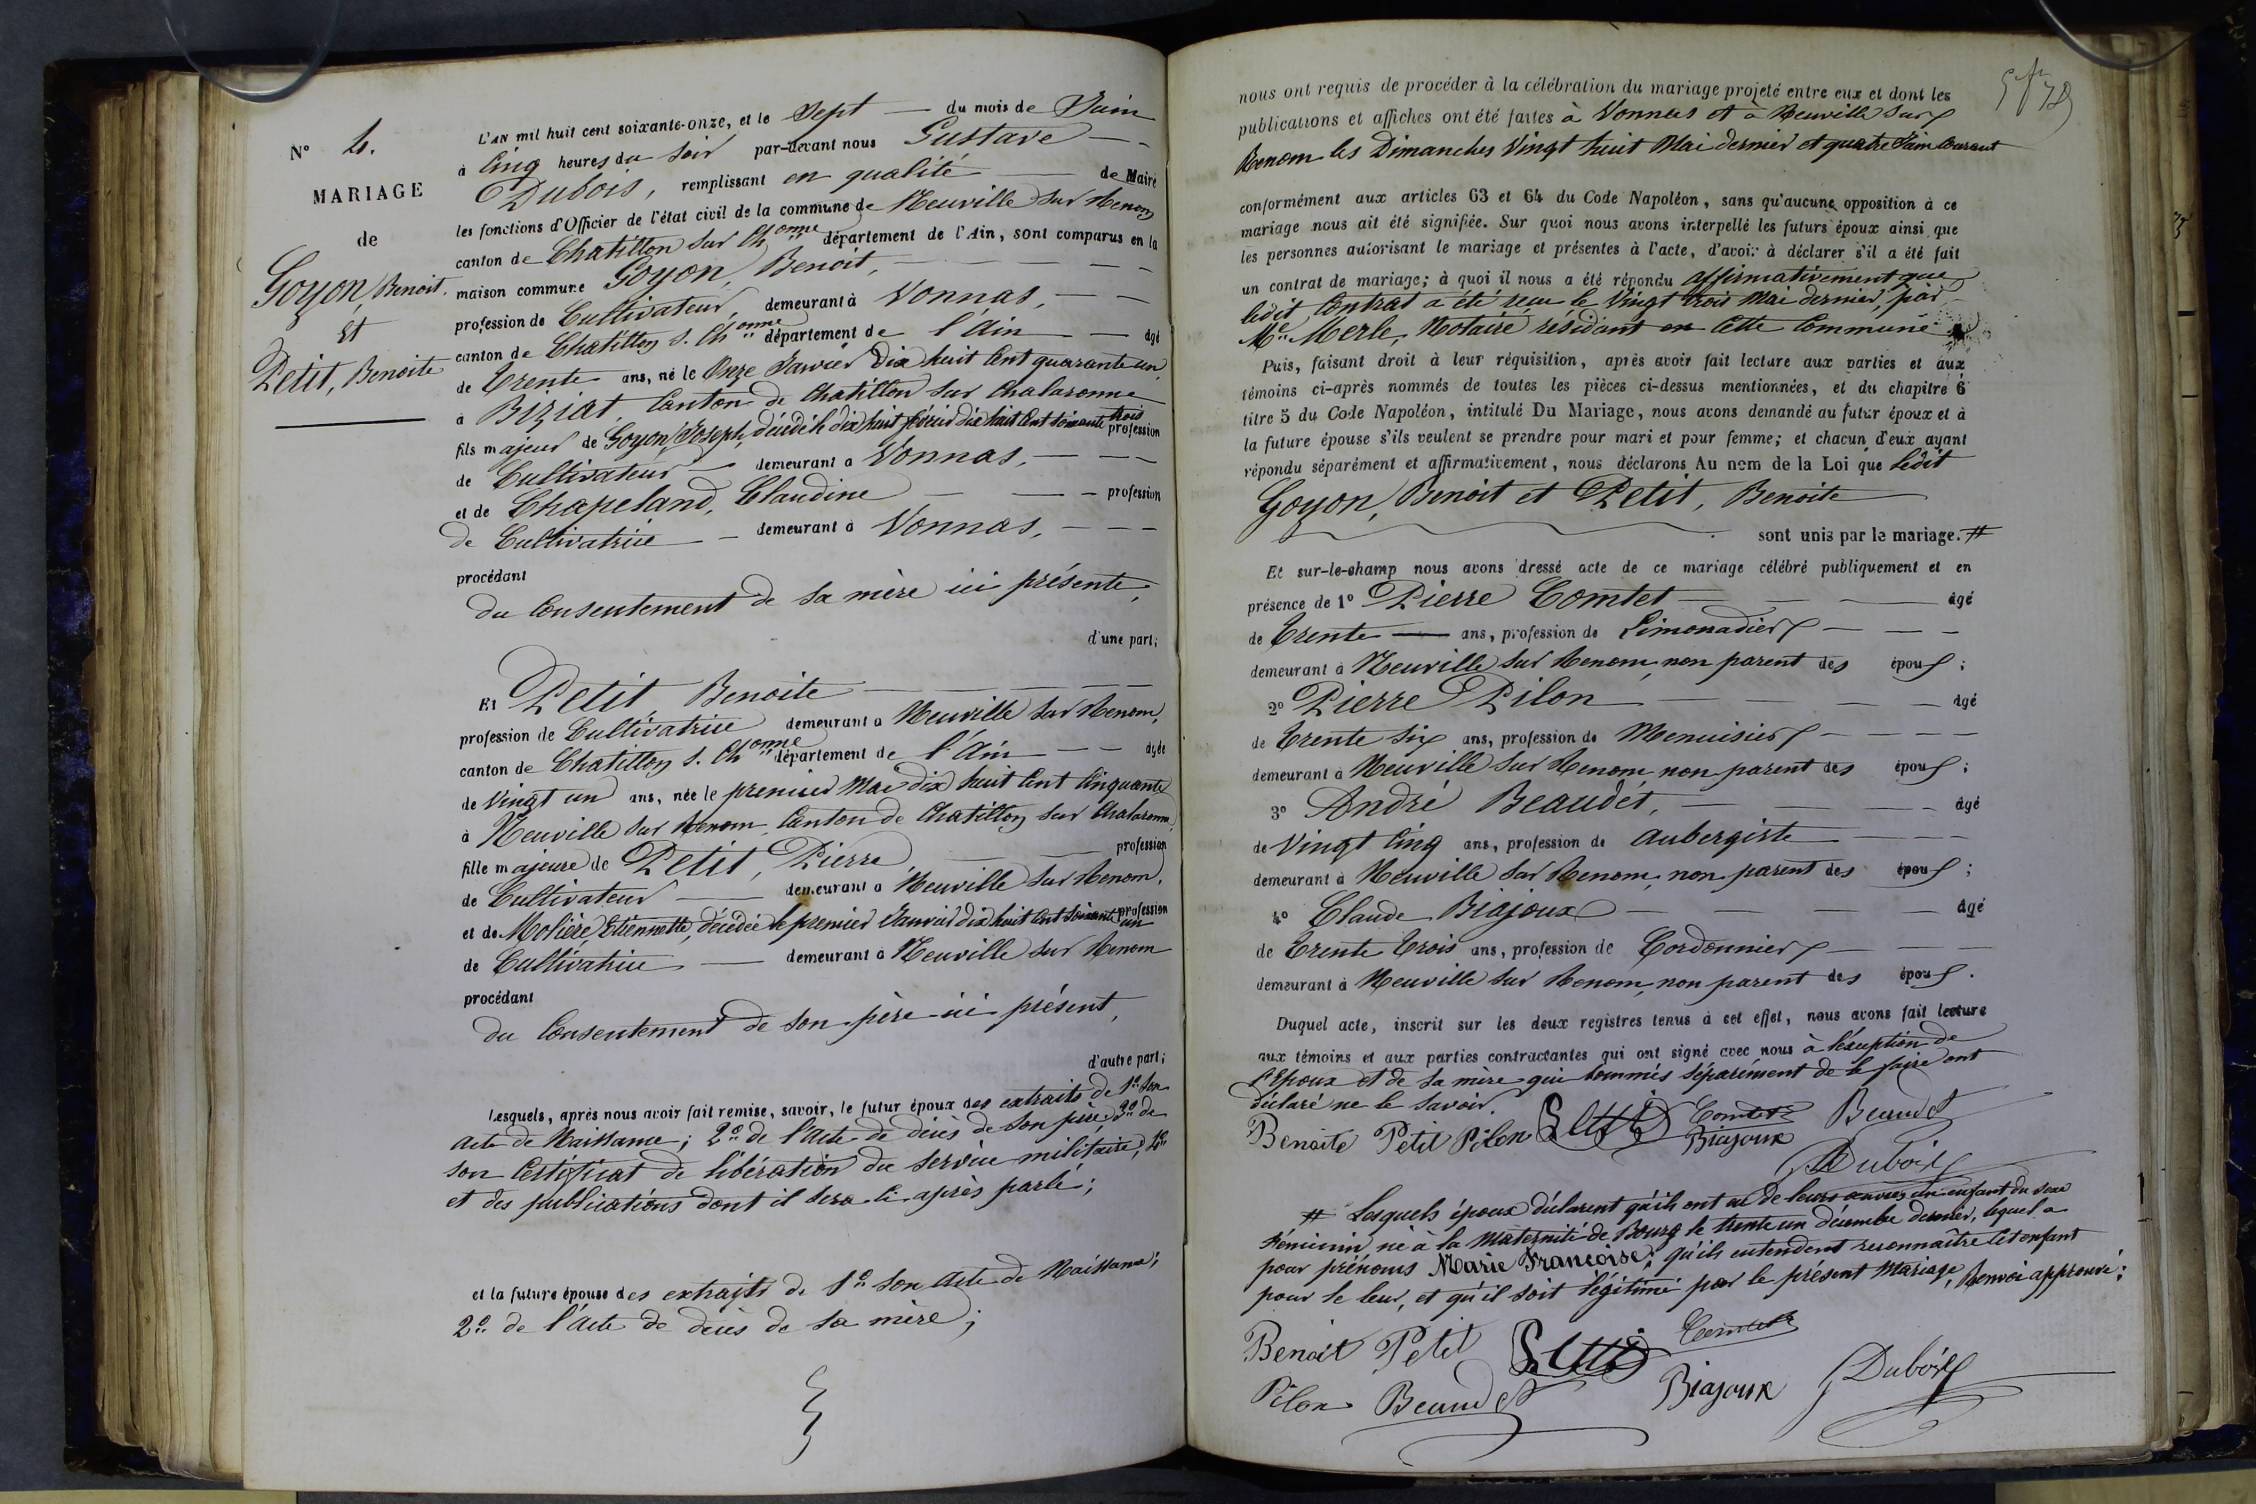 N° 4.
MARIAGE
de
Goyon, Benoit.
et
Petit, Benoite
L'AN mil huit cent soixante-onze, et le Sept du mois de Juin
à Cinq heures du Soir par-devant nous Gustave
Dubois, remplissant en qualité de Maire
les fonctions d'Officier de l'état civil de la commune de Neuville sur Renom
canton de Chatillon sur Chonne département de l'Ain, sont comparus en la
maison commune Goyon, Benoit,
profession de Cultivateur, demeurant à Vonnas,
canton de Chatillon s. Chonne département de l'Ain âgé
de Trente ans, né le Onze Janvier Dix huit Cent quarante un,
à Biziat, Canton de Chatillon sur Chalaronne
fils majeur de Goyon, Joseph, décédé le dix huit février dix huit Cent soixante trois profession
de Cultivateur demeurant à Vonnas,
et de Chapeland, Claudine profession
de Cultivatrice demeurant à Vonnas,
procédant
du Consentement de sa mère ici présente,
d'une part;
Et Petit, Benoite
profession de Cultivatrice demeurant à Neuville sur Renom,
canton de Chatillon s. Chonne département de l'Ain âgée
de Vingt un ans, née le premier Mai dix huit Cent Cinquante
à Neuville sur Renom, Canton de Chatillon sur Chalaronne,
fille majeure de Petit, Pierre, profession
de Cultivateur demeurant à Neuville sur Renom,
et de Molière, Etiennette, décédée le premier Janvier dix huit Cent Soixante un profession
de Cultivatrice demeurant à Neuville sur Renom
procédant
du Consentement de son père ici présent,
d'autre part;
Lesquels, après nous avoir fait remise, savoir, le futur époux des extraits de 1° son
acte de Naissance; 2° de l'acte de décès de son père; 3° de
son Certificat de libération du service militaire; 4°
et des publications dont il sera ci-après parlé;
et la future épouse des extraits de 1° son acte de Naissance;
2° de l'acte de décès de sa mère;
nous ont requis de procéder à la célébration du mariage projeté entre eux et dont les
publications et affiches ont été faites à Vonnas et à Neuville sur
Renom les Dimanches Vingt huit Mai dernier et quatre Juin Courant
conformément aux articles 63 et 64 du Code Napoléon, sans qu'aucune opposition à ce
mariage nous ait été signifiée. Sur quoi nous avons interpellé les futurs époux ainsi que
les personnes autorisant le mariage et présentes à l'acte, d'avoir à déclarer s'il a été fait
un contrat de mariage; à quoi il nous a été répondu affirmativement que
ledit Contrat a été reçu le Vingt trois Mai dernier, par
Me Merle, Notaire résidant en cette Commune
Puis, faisant droit à leur réquisition, après avoir fait lecture aux parties et aux
témoins ci-après nommés de toutes les pièces ci-dessus mentionnées, et du chapitre 6
titre 5 du Code Napoléon, intitulé Du Mariage, nous avons demandé au futur époux et à
la future épouse s'ils veulent se prendre pour mari et pour femme; et chacun d'eux ayant
répondu séparément et affirmativement, nous déclarons Au nom de la Loi que ledit
Goyon, Benoit et Petit, Benoite
sont unis par le mariage. #
Et sur-le-champ nous avons dressé acte de ce mariage célébré publiquement et en
présence de 1° Pierre Comtet âgé
de Trente ans, profession de Limonadier
demeurant à Neuville sur Renom, non parent des époux;
2° Pierre Pilon âgé
de Trente six ans, profession de Menuisier
demeurant à Neuville sur Renom, non parent des époux;
3° André Beaudet, âgé
de Vingt Cinq ans, profession de aubergiste
demeurant à Neuville sur Renom, non parent des époux;
4° Claude Biajoux âgé
de Trente Trois ans, profession de Cordonnier
demeurant à Neuville sur Renom, non parent des époux.
Duquel acte, inscrit sur les deux registres tenus à cet effet, nous avons fait lecture
aux témoins et aux parties contractantes qui ont signé avec nous à l'exception de
l'Epoux et de sa mère qui sommés séparément de le faire ont
déclaré ne le savoir.
Benoite Petit Pilon Petit Comtet Beaudet
Biajoux
Dubois
# Lesquels époux déclarent qu'ils ont eu de leurs œuvres un enfant du sexe
féminin né à la Maternité de Bourg le trente un décembre dernier, lequel a
pour prénoms Marie Françoise; qu'ils entendent reconnaître cet enfant
pour le leur, et qu'il soit légitimé par le présent Mariage, Renvoi approuvé:
Benoit Petit Petit Comtet
Pilon Beaudet Biajoux Dubois